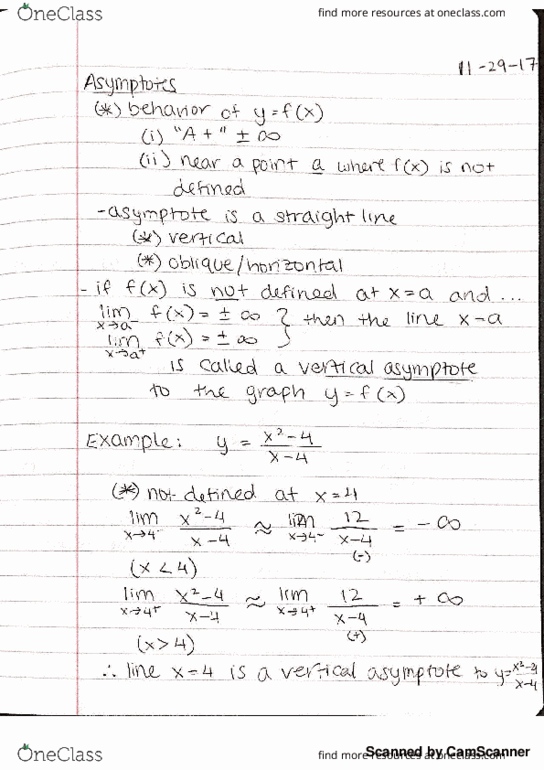 OneClass
find more resources at oneclass.com
11-29-17
Asymptotes
(*) behavior of y=f(x)
(i) "A+" ± ∞
(ii) near a point a where f(x) is not
defined
-asymptote is a straight line
(*) vertical
(*) oblique/horizontal
- if f(x) is not defined at x=a and ...
lim x→a⁻ f(x) = ± ∞ } then the line x-a
lim x→a⁺ f(x) = ± ∞
is called a vertical asymptote
to the graph y=f(x)
Example: y = x²-4 / x-4
(*) not defined at x=4
lim x→4⁻ x²-4 / x-4 ≈ lim x→4⁻ 12 / x-4 = -∞
(-)
(x<4)
lim x→4⁺ x²-4 / x-4 ≈ lim x→4⁺ 12 / x-4 = +∞
(+)
(x>4)
∴ line x=4 is a vertical asymptote to y= / x-4
OneClass
find more resources at oneclass.com
Scanned by CamScanner